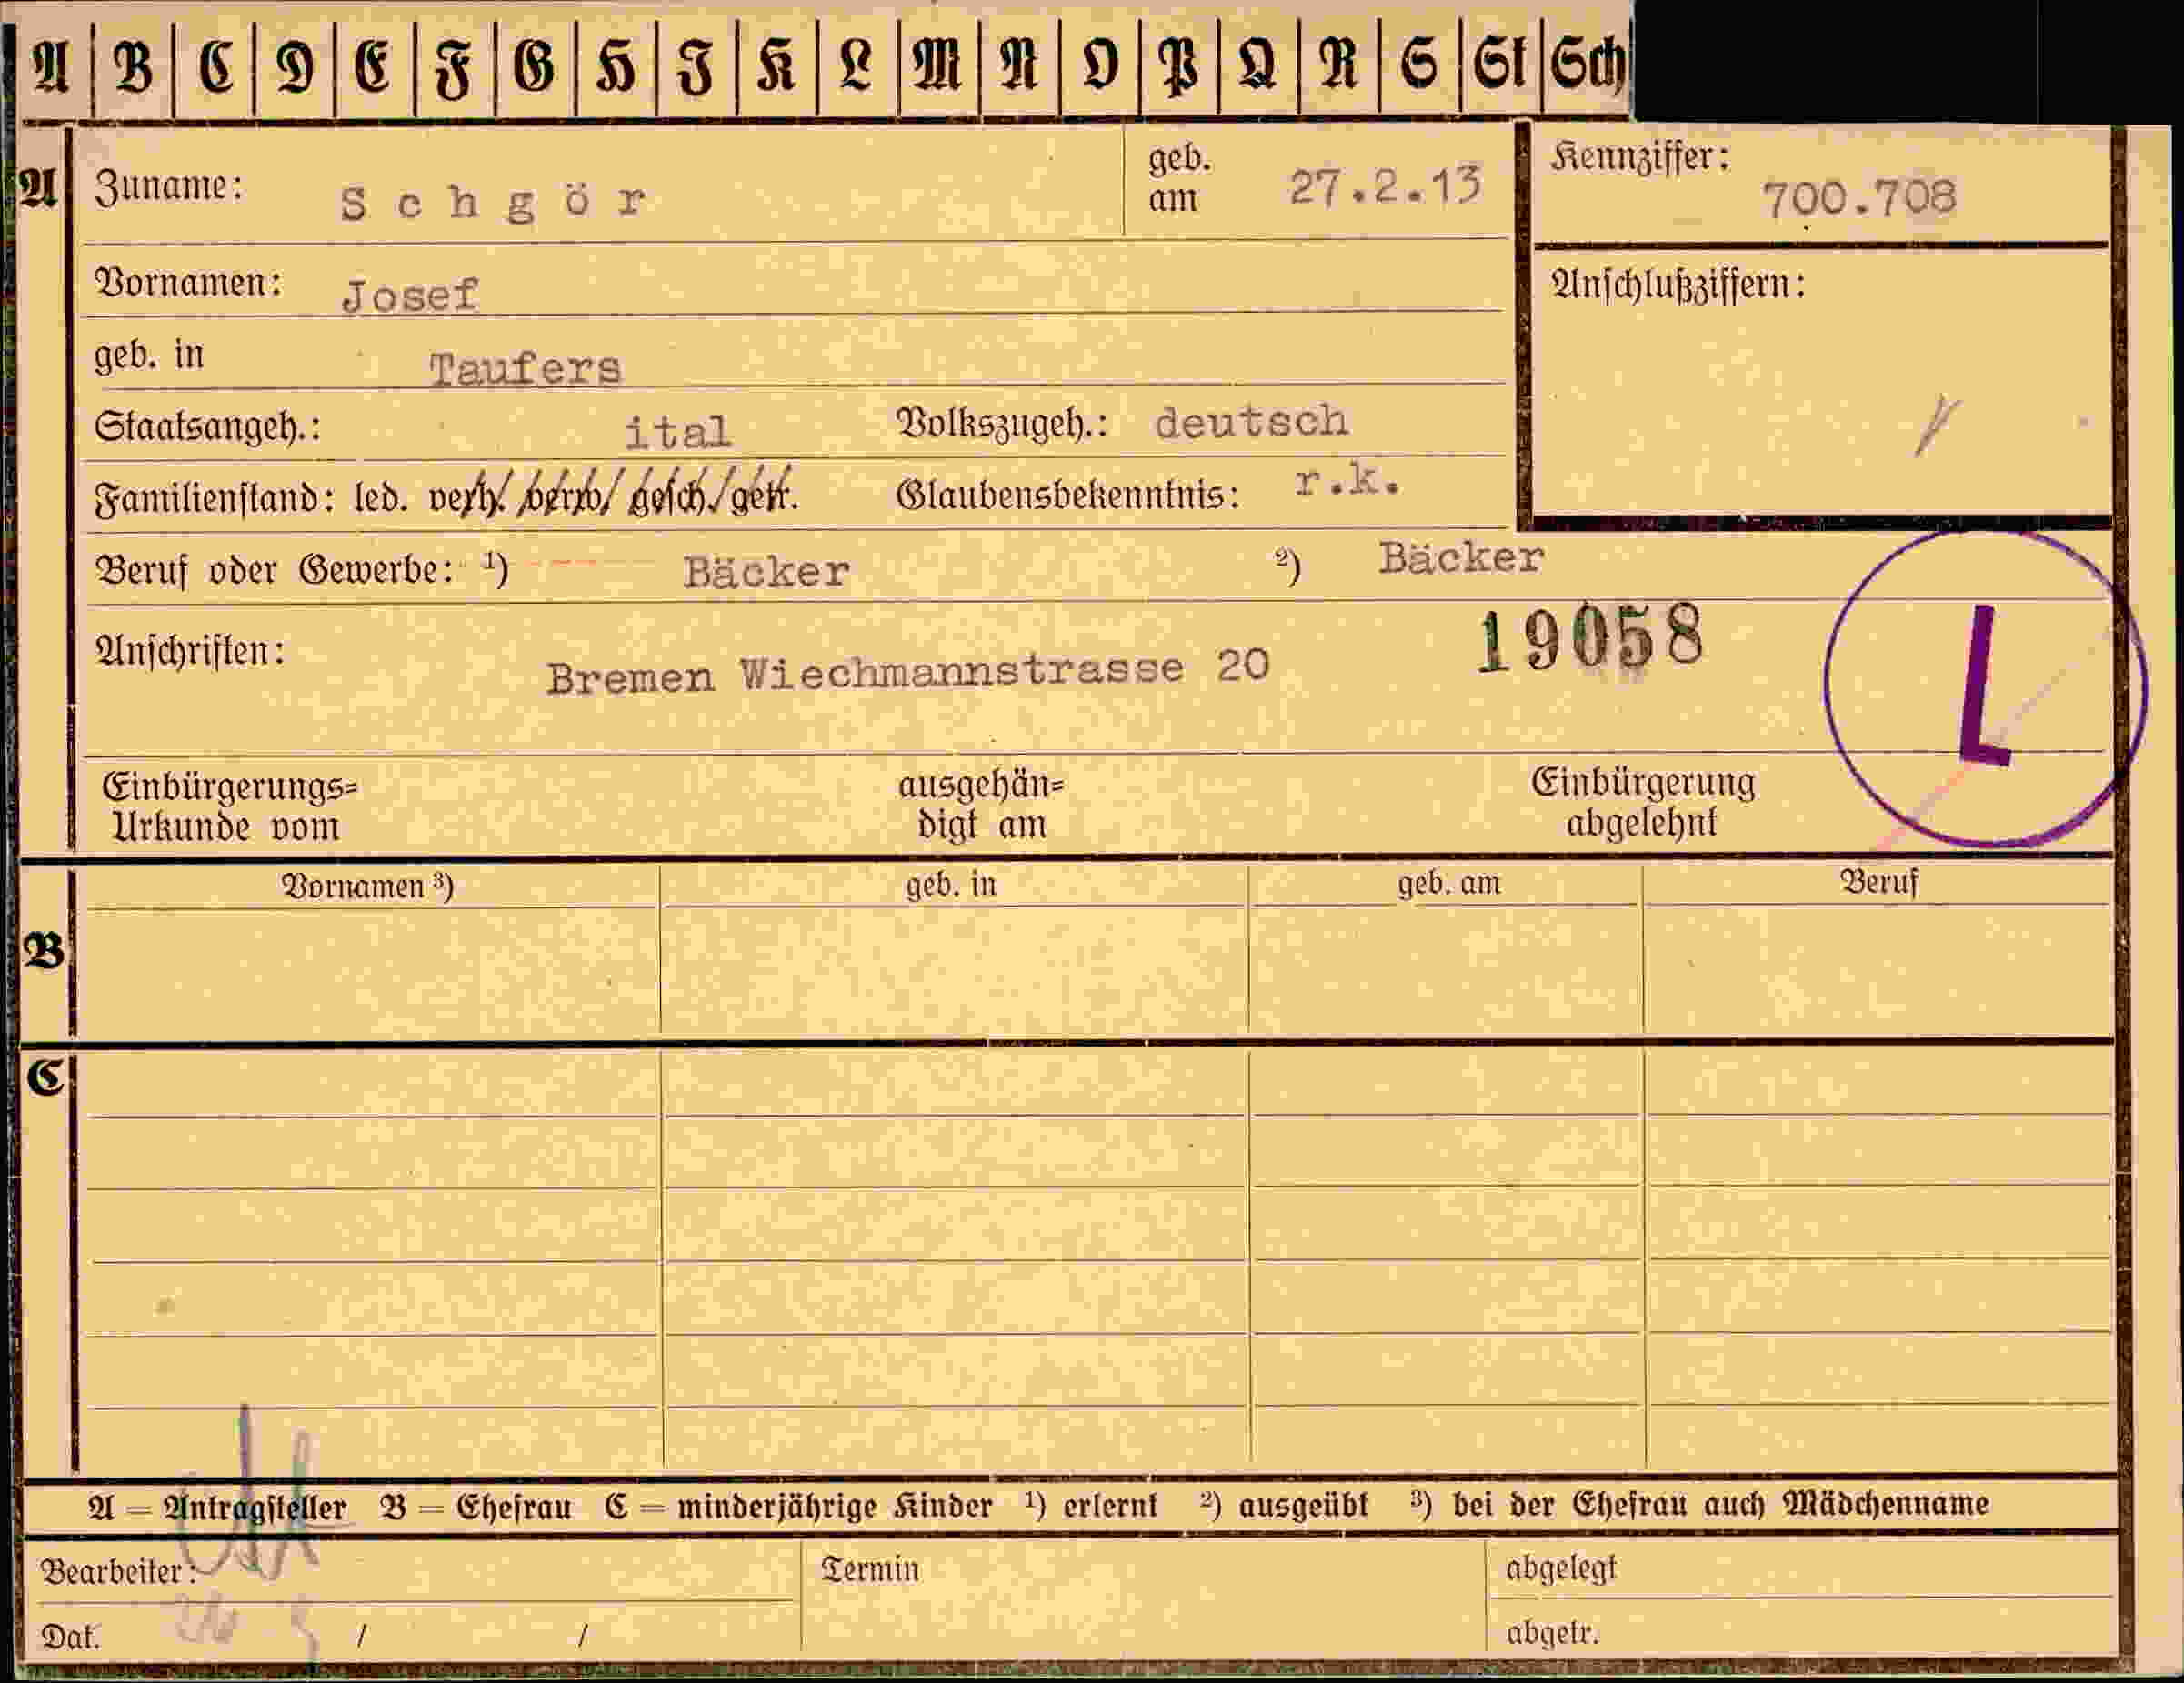 A B C D E F G H I K L M N O P Q R S St Sch
A Zuname: Schgör geb. am 27.2.13 Kennziffer: 700.708
Vornamen: Josef Anschlußziffern:
geb. in Taufers
Staatsangeh.: ital Volkszugeh.: deutsch
Familienstand: led. verh. verw. gesch. getr. Glaubensbekenntnis: r.k.
Beruf oder Gewerbe: 1) Bäcker 2) Bäcker
Anschriften: Bremen Wiechmannstrasse 20 19058 L
Einbürgerungs= ausgehän= Einbürgerung
Urkunde vom digt am abgelehnt
Vornamen 3) geb. in geb. am Beruf
B
C
A = Antragsteller B = Ehefrau C = minderjährige Kinder 1) erlernt 2) ausgeübt 3) bei der Ehefrau auch Mädchenname
Bearbeiter: Termin abgelegt
Dat. / / abgetr.